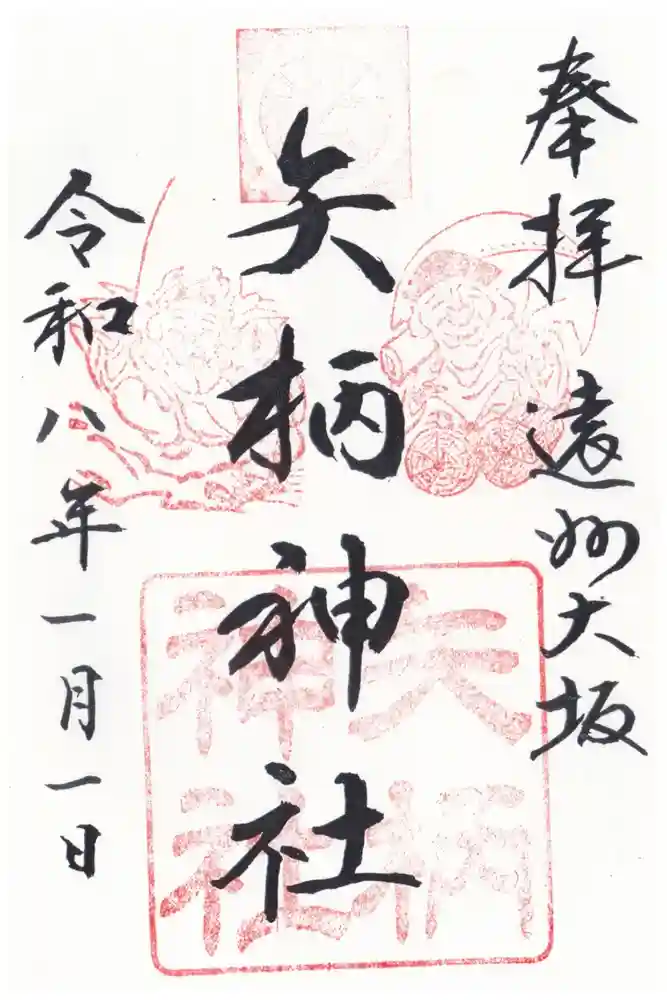 奉拝 遠州大坂
矢柄神社
矢柄
神社
令和八年一月一日